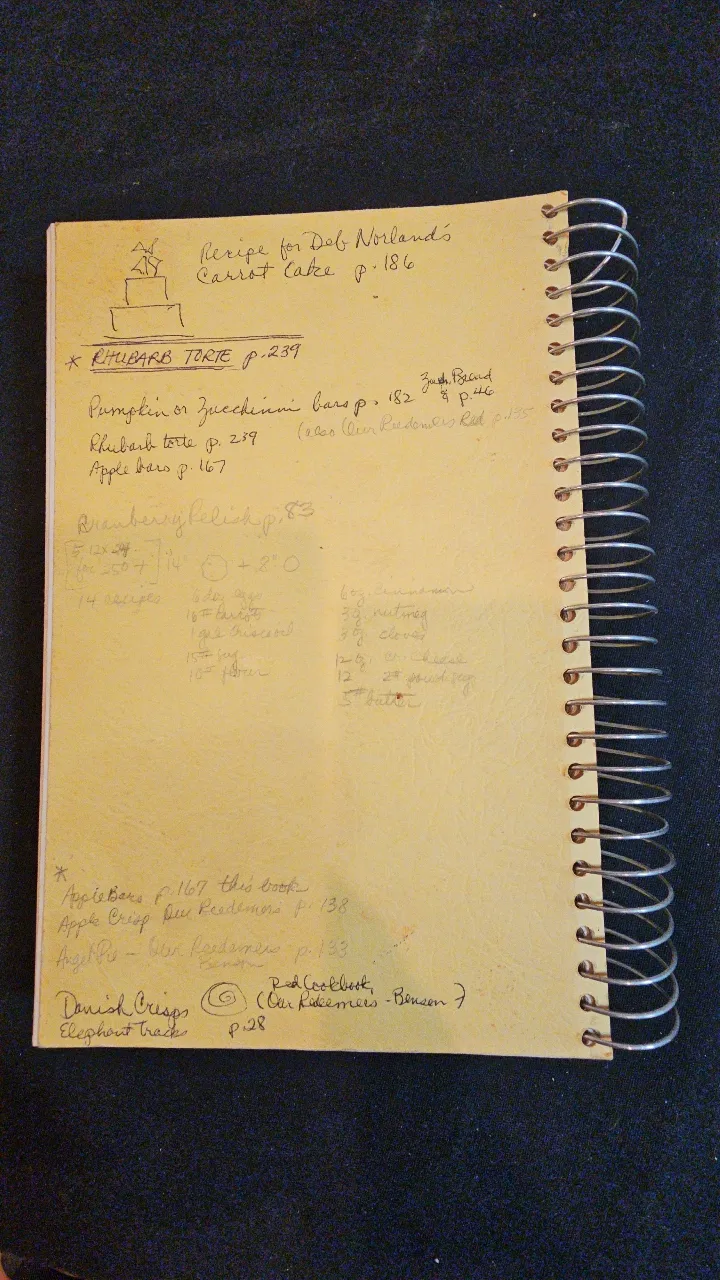 Recipe for Deb Norland's
Carrot Cake p. 186
* RHUBARB TORTE p. 239
Pumpkin or Zucchinni bars p. 182 Zuch. Bread & p. 46
Rhubarb torte p. 239 (also Our Reedemers Red p. 135
Apple bars p. 167
Cranberry Relish p. 83
for 250 + 14" + 8"
14 recipes
6 doz eggs
16# carrots
15# sug
flour
6 oz. cinnamon
3 oz. nutmeg
3 oz cloves
12 cheese
12 2# powd sug
5# butter
*
Apple Bars p. 167 this book
Apple Crisp Our Reedemers p. 138
Angel Pie - Our Reedemers p. 133
Benson
Danish Crisps Red Cookbook
(Our Redeemers - Benson)
Elephant Tracks p. 28